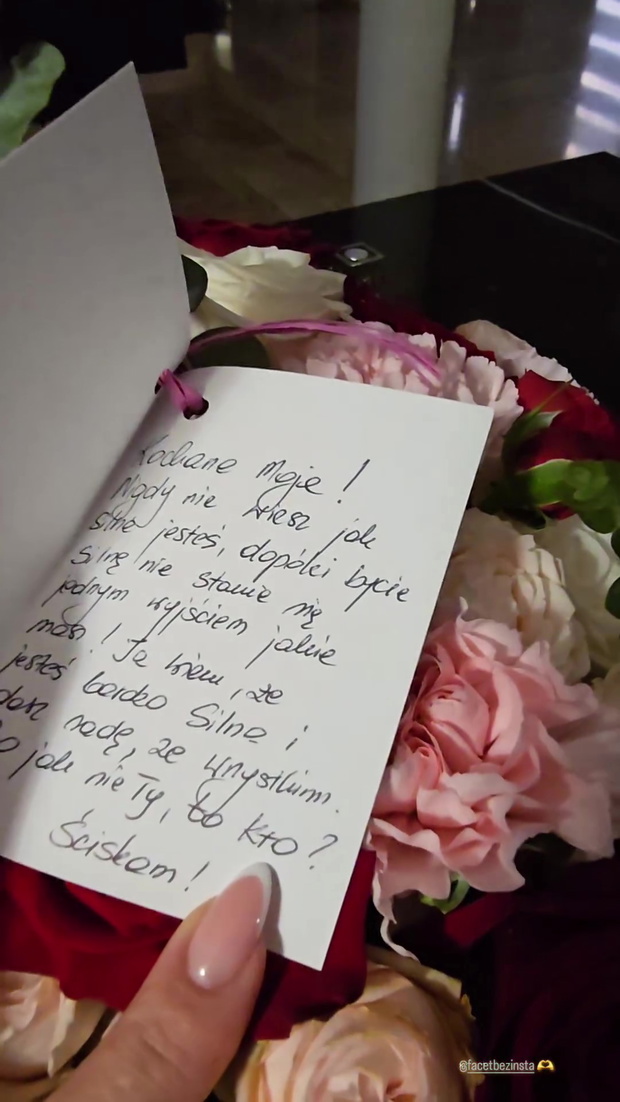 Kochane Moje!
Nigdy nie wiesz jak
silna jesteś, dopóki bycie
silną nie stanie się
jednym wyjściem jakie
masz! Ja wiem, że
jesteś bardzo silna i
dasz radę, ze wszystkim.
Bo jak nie Ty, to kto?
Ściskam!
@facetbezinsta 🫶